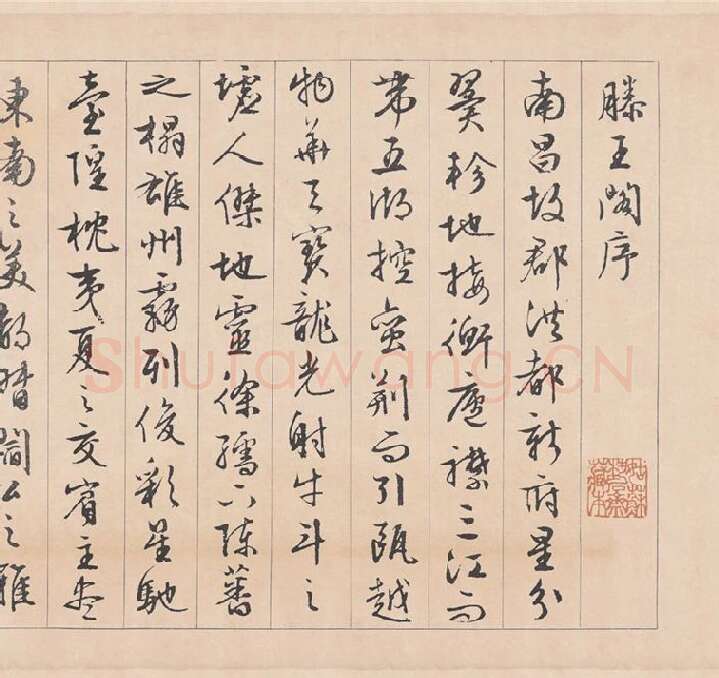 滕王閣序
南昌故郡洪都新府星分
翼軫地接衡廬襟三江而
帶五湖控蠻荆而引甌越
物華天寶龍光射牛斗之
墟人傑地靈徐孺下陳蕃
之榻雄州霧列俊彩星馳
臺隍枕夷夏之交賓主盡
東南之美都督閻公之雅
Shufawang.CN